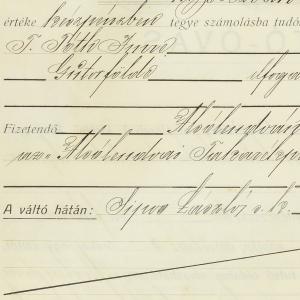 értéke készpénzben tegye számolásba tudó
T. Tóth Imre
Gutorfölde elfoga
Fizetendő Alsólendván
az Alsólendvai Takarékp
A váltó hátán: Sipos László s. k.